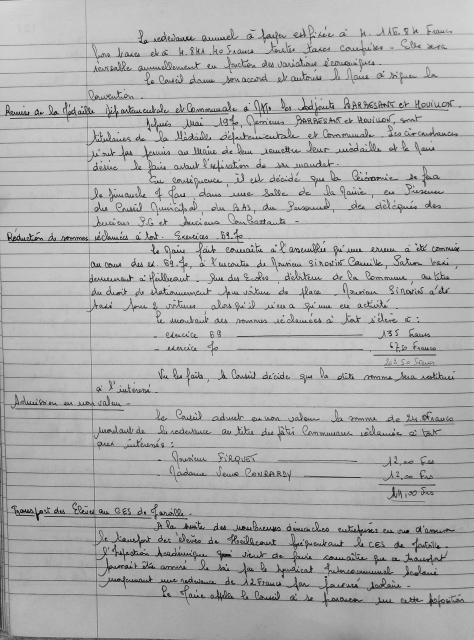 La redevance annuel à payer est fixée à 4.116.84 Francs
hors taxes et à 4.841.40 Francs toutes taxes comprises. Elle sera
révisable annuellement en fonction des variations économiques.
Le Conseil donne son accord et autorise le Maire à signer la
Convention.
Remise de la Médaille Départementale et Communale à MM. les Adjoints BARBESANT et HOUILLON.
Depuis Mai 1970, Messieurs BARBESANT et HOUILLON, sont
titulaires de la Médaille départementale et Communale. Les circonstances
n'ont pas permis au Maire de leur remettre leur médaille et le Maire
désire le faire avant l'expiration de son mandat.
En conséquence, il est décidé que la Cérémonie se fera
le dimanche 7 dans une Salle de la Mairie, en Présence
du Conseil Municipal, du BAS, du Personnel, des délégués des
Anciens P.G et Anciens Combattants.
Réduction de sommes réclamées à tort. Exercices 69.70
Le Maire fait connaître à l'assemblée qu'une erreur a été commise
au cours des ex. 69.70, à l'encontre de Monsieur SIRONIN Camille, Patron taxi,
demeurant à Heillecourt, Rue des Ecoles, débiteur de la Commune, au titre
du droit de stationnement pour voiture de place. Monsieur SIRONIN a été
taxé pour 2 voitures alors qu'il n'en a qu'une en activité.
Le montant des sommes réclamées à tort s'élève à :
- exercice 69 135 Francs
- exercice 70 Francs
Francs
Vu les faits, le Conseil décide que la dite somme sera restituée
à l'intéressé.
Admission en non valeur.
Le Conseil admet en non valeur la somme de 24 Francs
montant de la redevance au titre des fêtes Communales réclamée à tort
aux intéressés :
- Monsieur FIRQUET 12,00 Frs
- Madame Veuve CONRARDY 12,00 Frs
24,00 Frs
Transport des Elèves au CES de Jarville.
A la suite des nombreuses démarches entreprises en vue d'assurer
le transport des élèves de Heillecourt fréquentant le CES de Jarville,
l'Inspection Académique vient de faire connaître que ce transport
pourrait être assuré le soir par le syndicat Intercommunal scolaire
moyennant une redevance de 12 Francs par journée scolaire.
Le Maire appelle le Conseil à se prononcer sur cette proposition